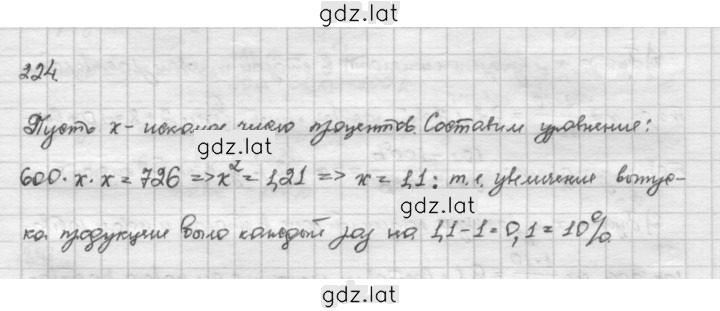 gdz.lat
224.
Пусть x - искомое число процентов. Составим уравнение:
gdz.lat
600·x·x = 726 => x² = 1,21 => x = 1,1; т.е. увеличение выпус-
gdz.lat
ка продукции было каждый раз на 1,1-1=0,1=10%.
gdz.lat